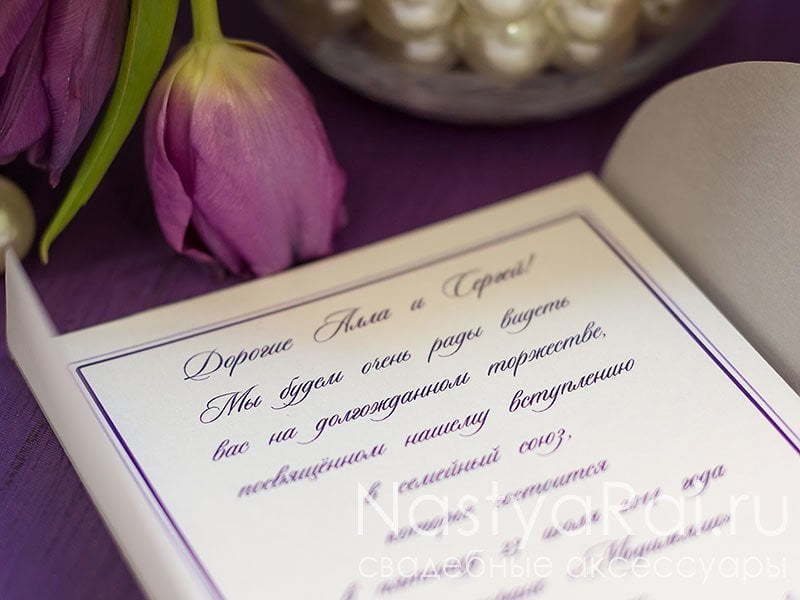 Дорогие Алла и Сергей!
Мы будем очень рады видеть
вас на долгожданном торжестве,
посвящённом нашему вступлению
в семейный союз,
которое состоится
июля года
NastyaRai.ru
свадебные аксессуары